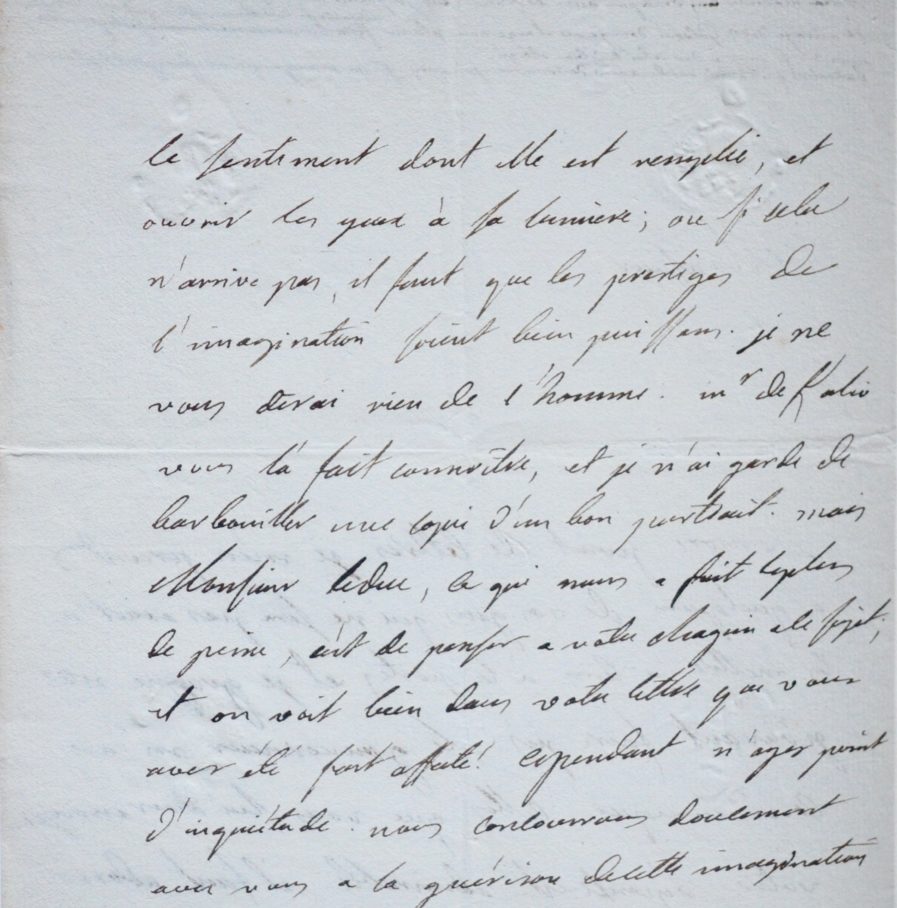 le sentiment dont elle est remplie, et
ouvrir les yeux à sa lumiere; ou si cela
n'arrive pas, il faut que les prestiges de
l'imagination soient bien puissans. je ne
vous dirai rien de l'homme. mr de
vous l'a fait connoître, et je n'ai garde de
barbouiller une copie d'un bon portrait. mais
Monsieur le duc, ce qui nous a fait le plus
de peine, c'est de penser a votre chagrin a ce sujet;
et on voit bien dans votre lettre que vous
avez été fort affecté! cependant n'ayez point
d'inquiétude. nous concourrons doucement
avec vous a la guérison de cette imagination